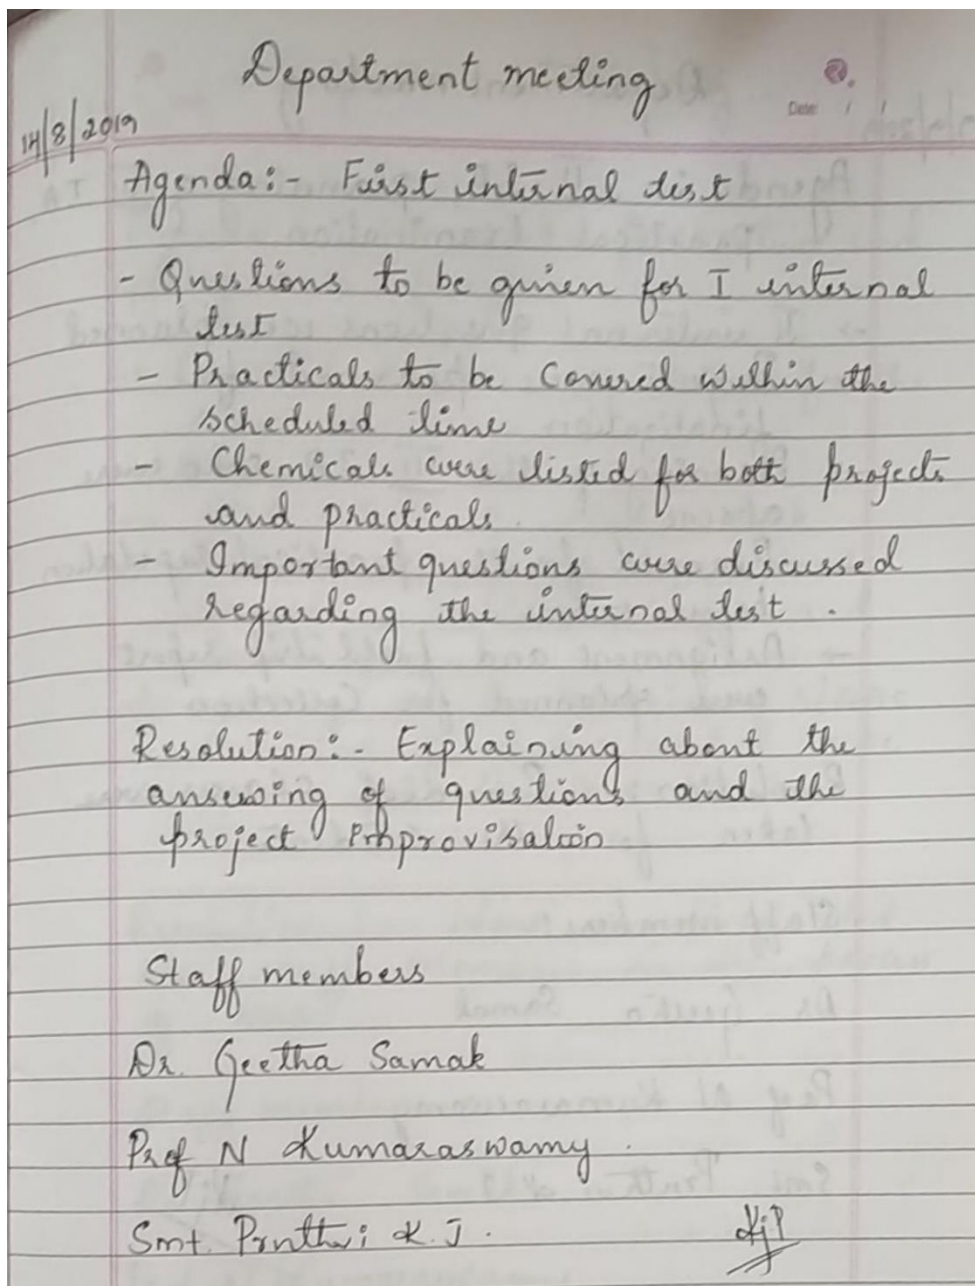 Department meeting
Date: / /
14/8/2019
Agenda:- First internal test
- Questions to be given for I internal
test
- Practicals to be covered within the
scheduled time
- Chemicals were listed for both projects
and practicals.
- Important questions were discussed
regarding the internal test.
Resolution:- Explaining about the
answing of questions and the
project improvisation
Staff members
Dr. Geetha Samak
Prof N Kumaraswamy.
Smt. Pruthvi K.J.